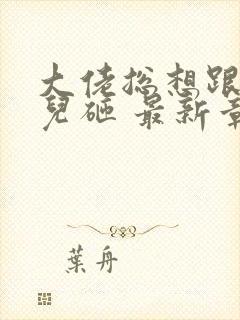 大佬总想跟
兒砸 最新章
葉舟